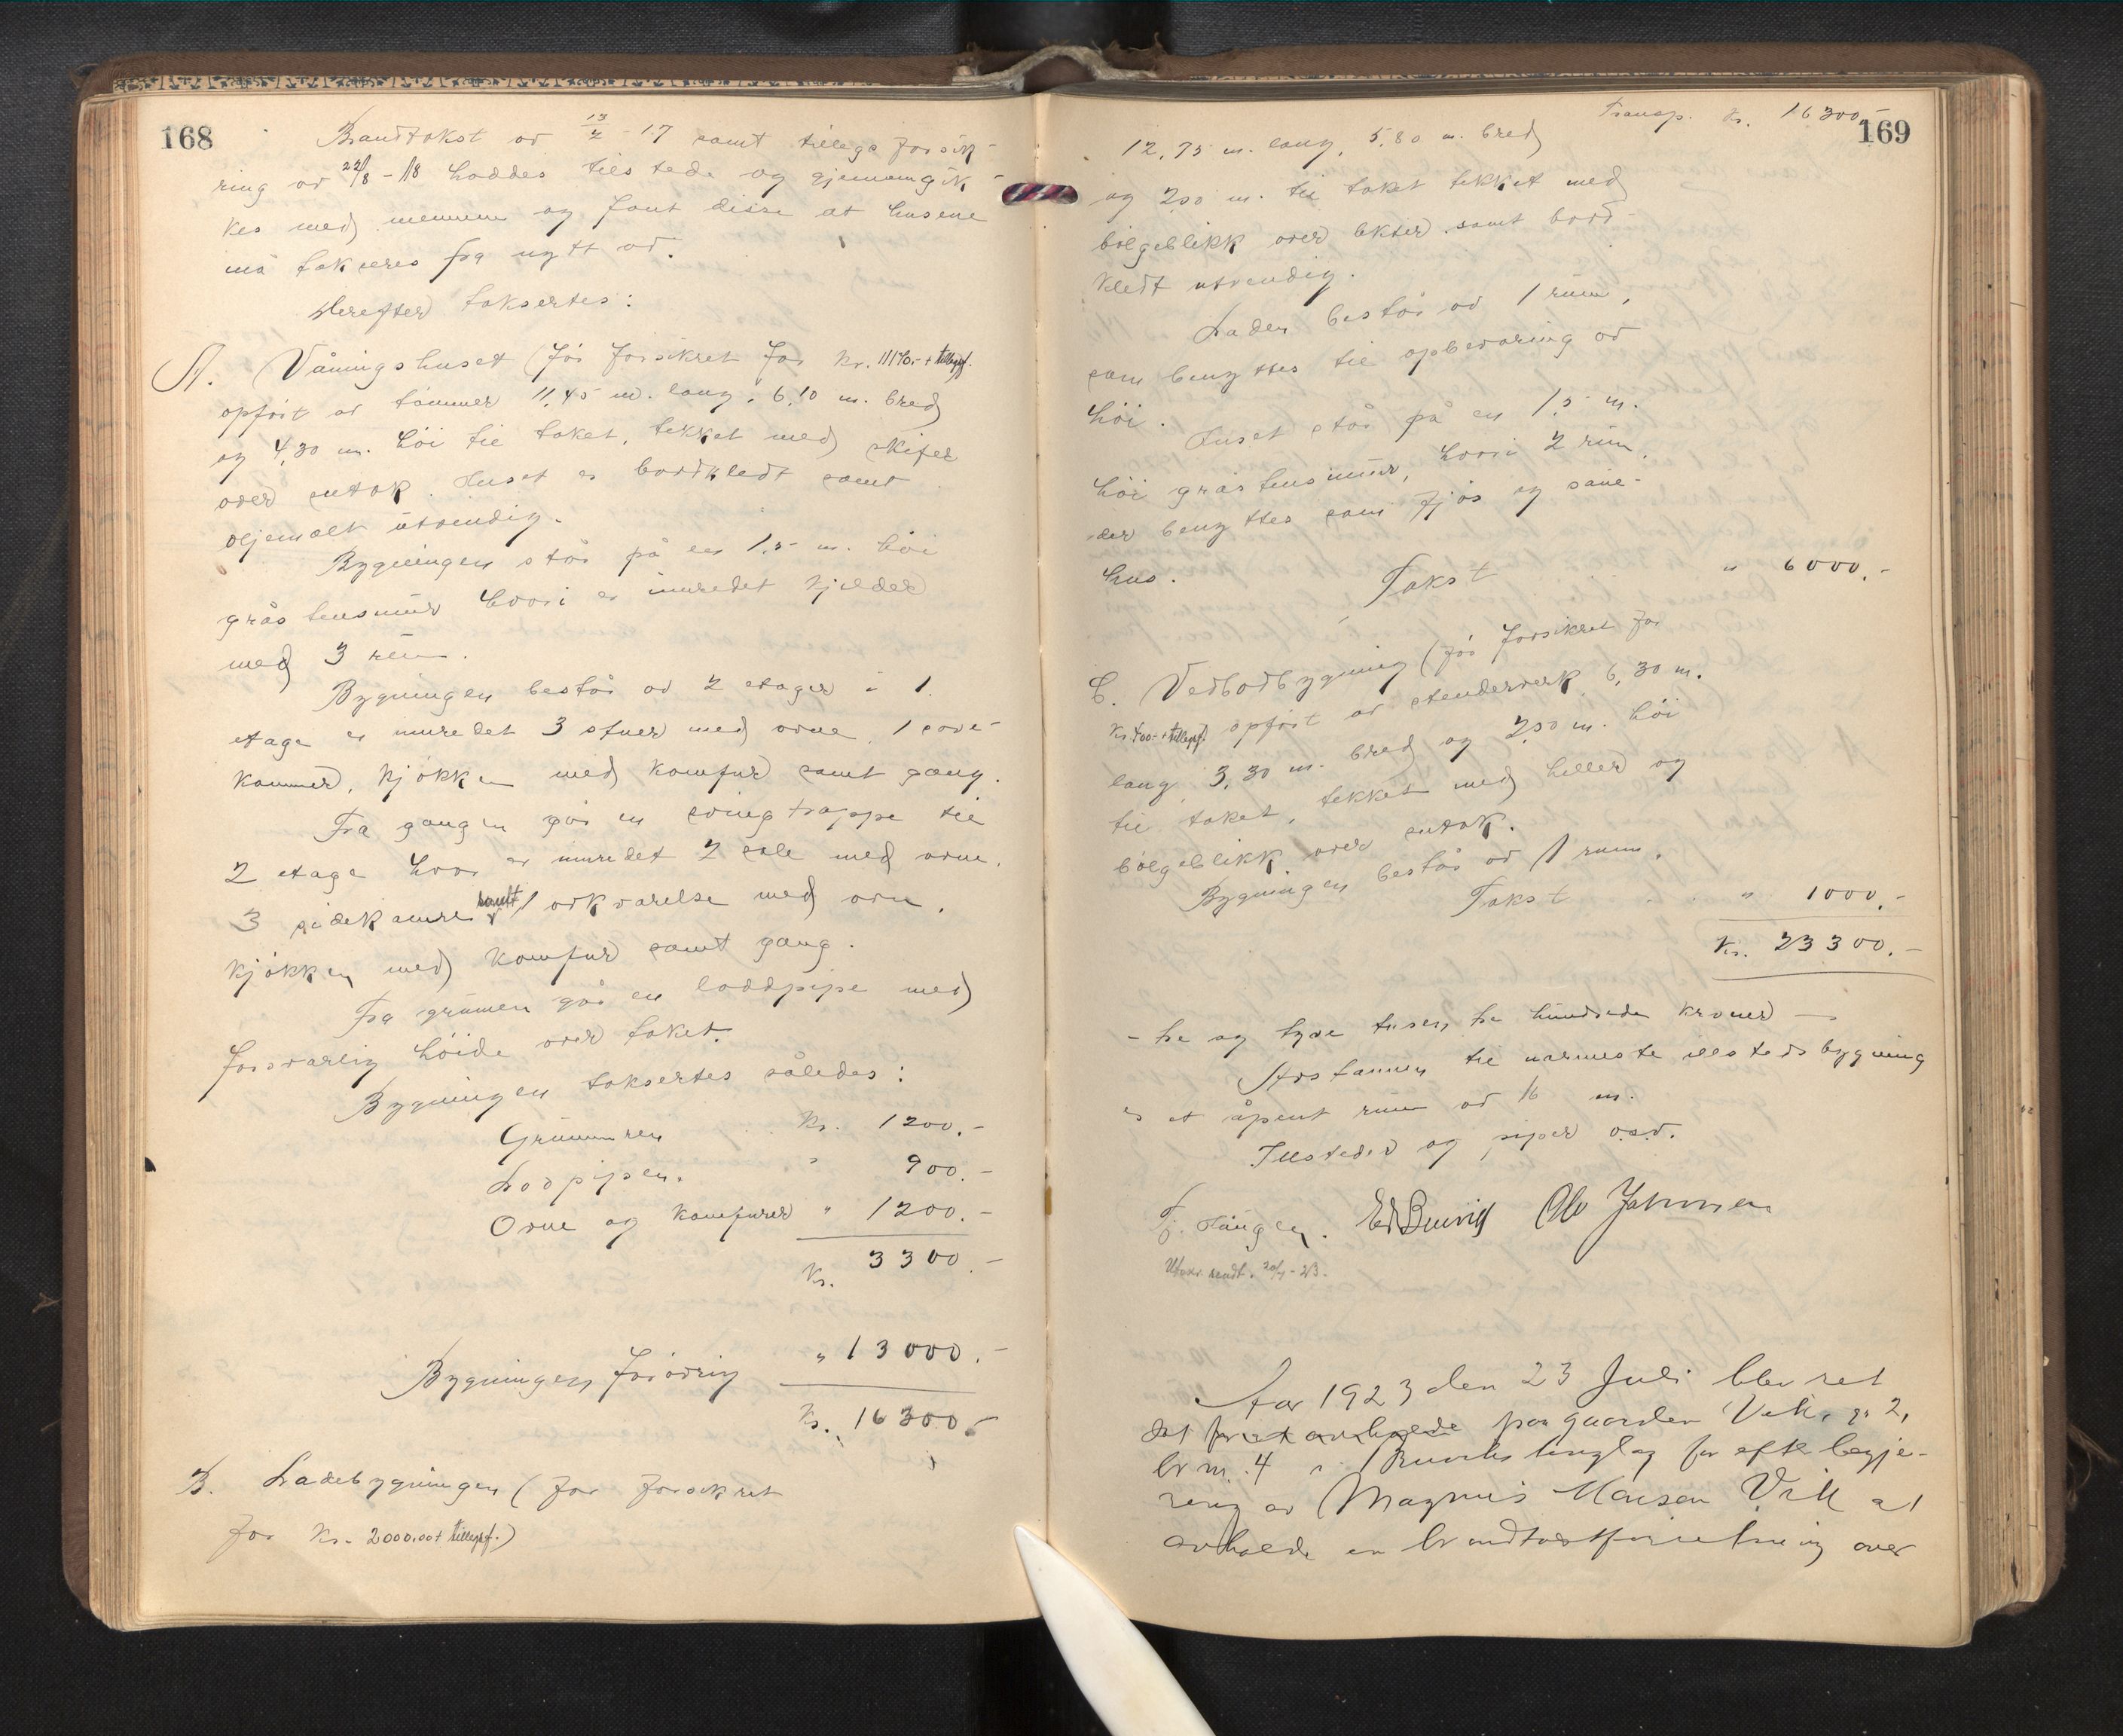 168
Brandtakst av 13/2 17 samt tillegs forsik-
ring av 22/8-18 haddes tilstede og gjennemgik-
kes med mennene og fant disse at husene
må takseres fra nytt av.
Herefter taksertes:
A. Våningshuset (før forsikret for kr. 11170.- + tillegsf.
opført av tømmer 11,45 m. lang, 6,10 m. bred
og 4,30 m. høi til taket, tekket med skifer
over sutak. Huset er bordkledt samt
oljemalt utvendig.
Bygningen står på en 1,5 m. høi
gråstensmur hvori er innredet kjelder
med 3 rum.
Bygningen består av 2 etager i 1.
etage er innredet 3 stuer med ovne, 1 sove-
kammer, kjøkken med komfur samt gang.
Fra gangen går en svingtrappe til
2 etage hvor er innredet 2 sale med ovne,
3 sidekamre samt 1 arkværelse med ovn,
kjøkken med komfur samt gang.
Fra grunnen går en loddpipe med
forsvarlig høide over taket.
Bygningen taksertes således:
Grunnmuren kr. 1200.-
Lodpipen. " 900.-
Ovne og komfurer " 1200.-
Kr. 3300.-
Bygningen forøvrig " 13000.-
Kr. 16300.-
B. Ladebygningen (før forsikret
for kr. 2000.00 + tillegsf.)
169
Transp. Kr. 16300.-
12,75 m. lang, 5,80 m. bred
og 2,50 m. til taket tekket med
bølgeblikk over lekter samt bord-
kledt utvendig.
Laden består av 1 rum,
som benyttes til opbevaring av
høi.
Huset står på en 1,5 m.
høi gråstensmur, hvori 2 rum,
der benyttes som fjøs og saue-
hus.
Takst " 6000.-
C. Vedbodbygning (før forsikret for
kr. 400.- + tillegsf. opført av stenderverk 6,30 m.
lang, 3,30 m. bred og 2,50 m. høi
til taket, tekket med heller og
bølgeblikk over sutak.
Bygningen består av 1 rum.
Takst " 1000.-
Kr. 23300.-
- tre og tyve tusen tre hundrede kroner -
Avstannen til nærmeste illstedsbygning
er et åpent rum av 16 m.
Illsteder og piper o.s.v.
Tj. Haugen. Ed Bruvik Olv Johnsen
Utskr. sendt. 20/7-23.
Aar 1923 den 23 Juli blev ret
det paa gaarden Vik, gr 2,
br nr. 4 i Bruviks tinglag for efter begjæ-
ring av Magnus Hansen Vik at
avholde en brandtaxtforretning over